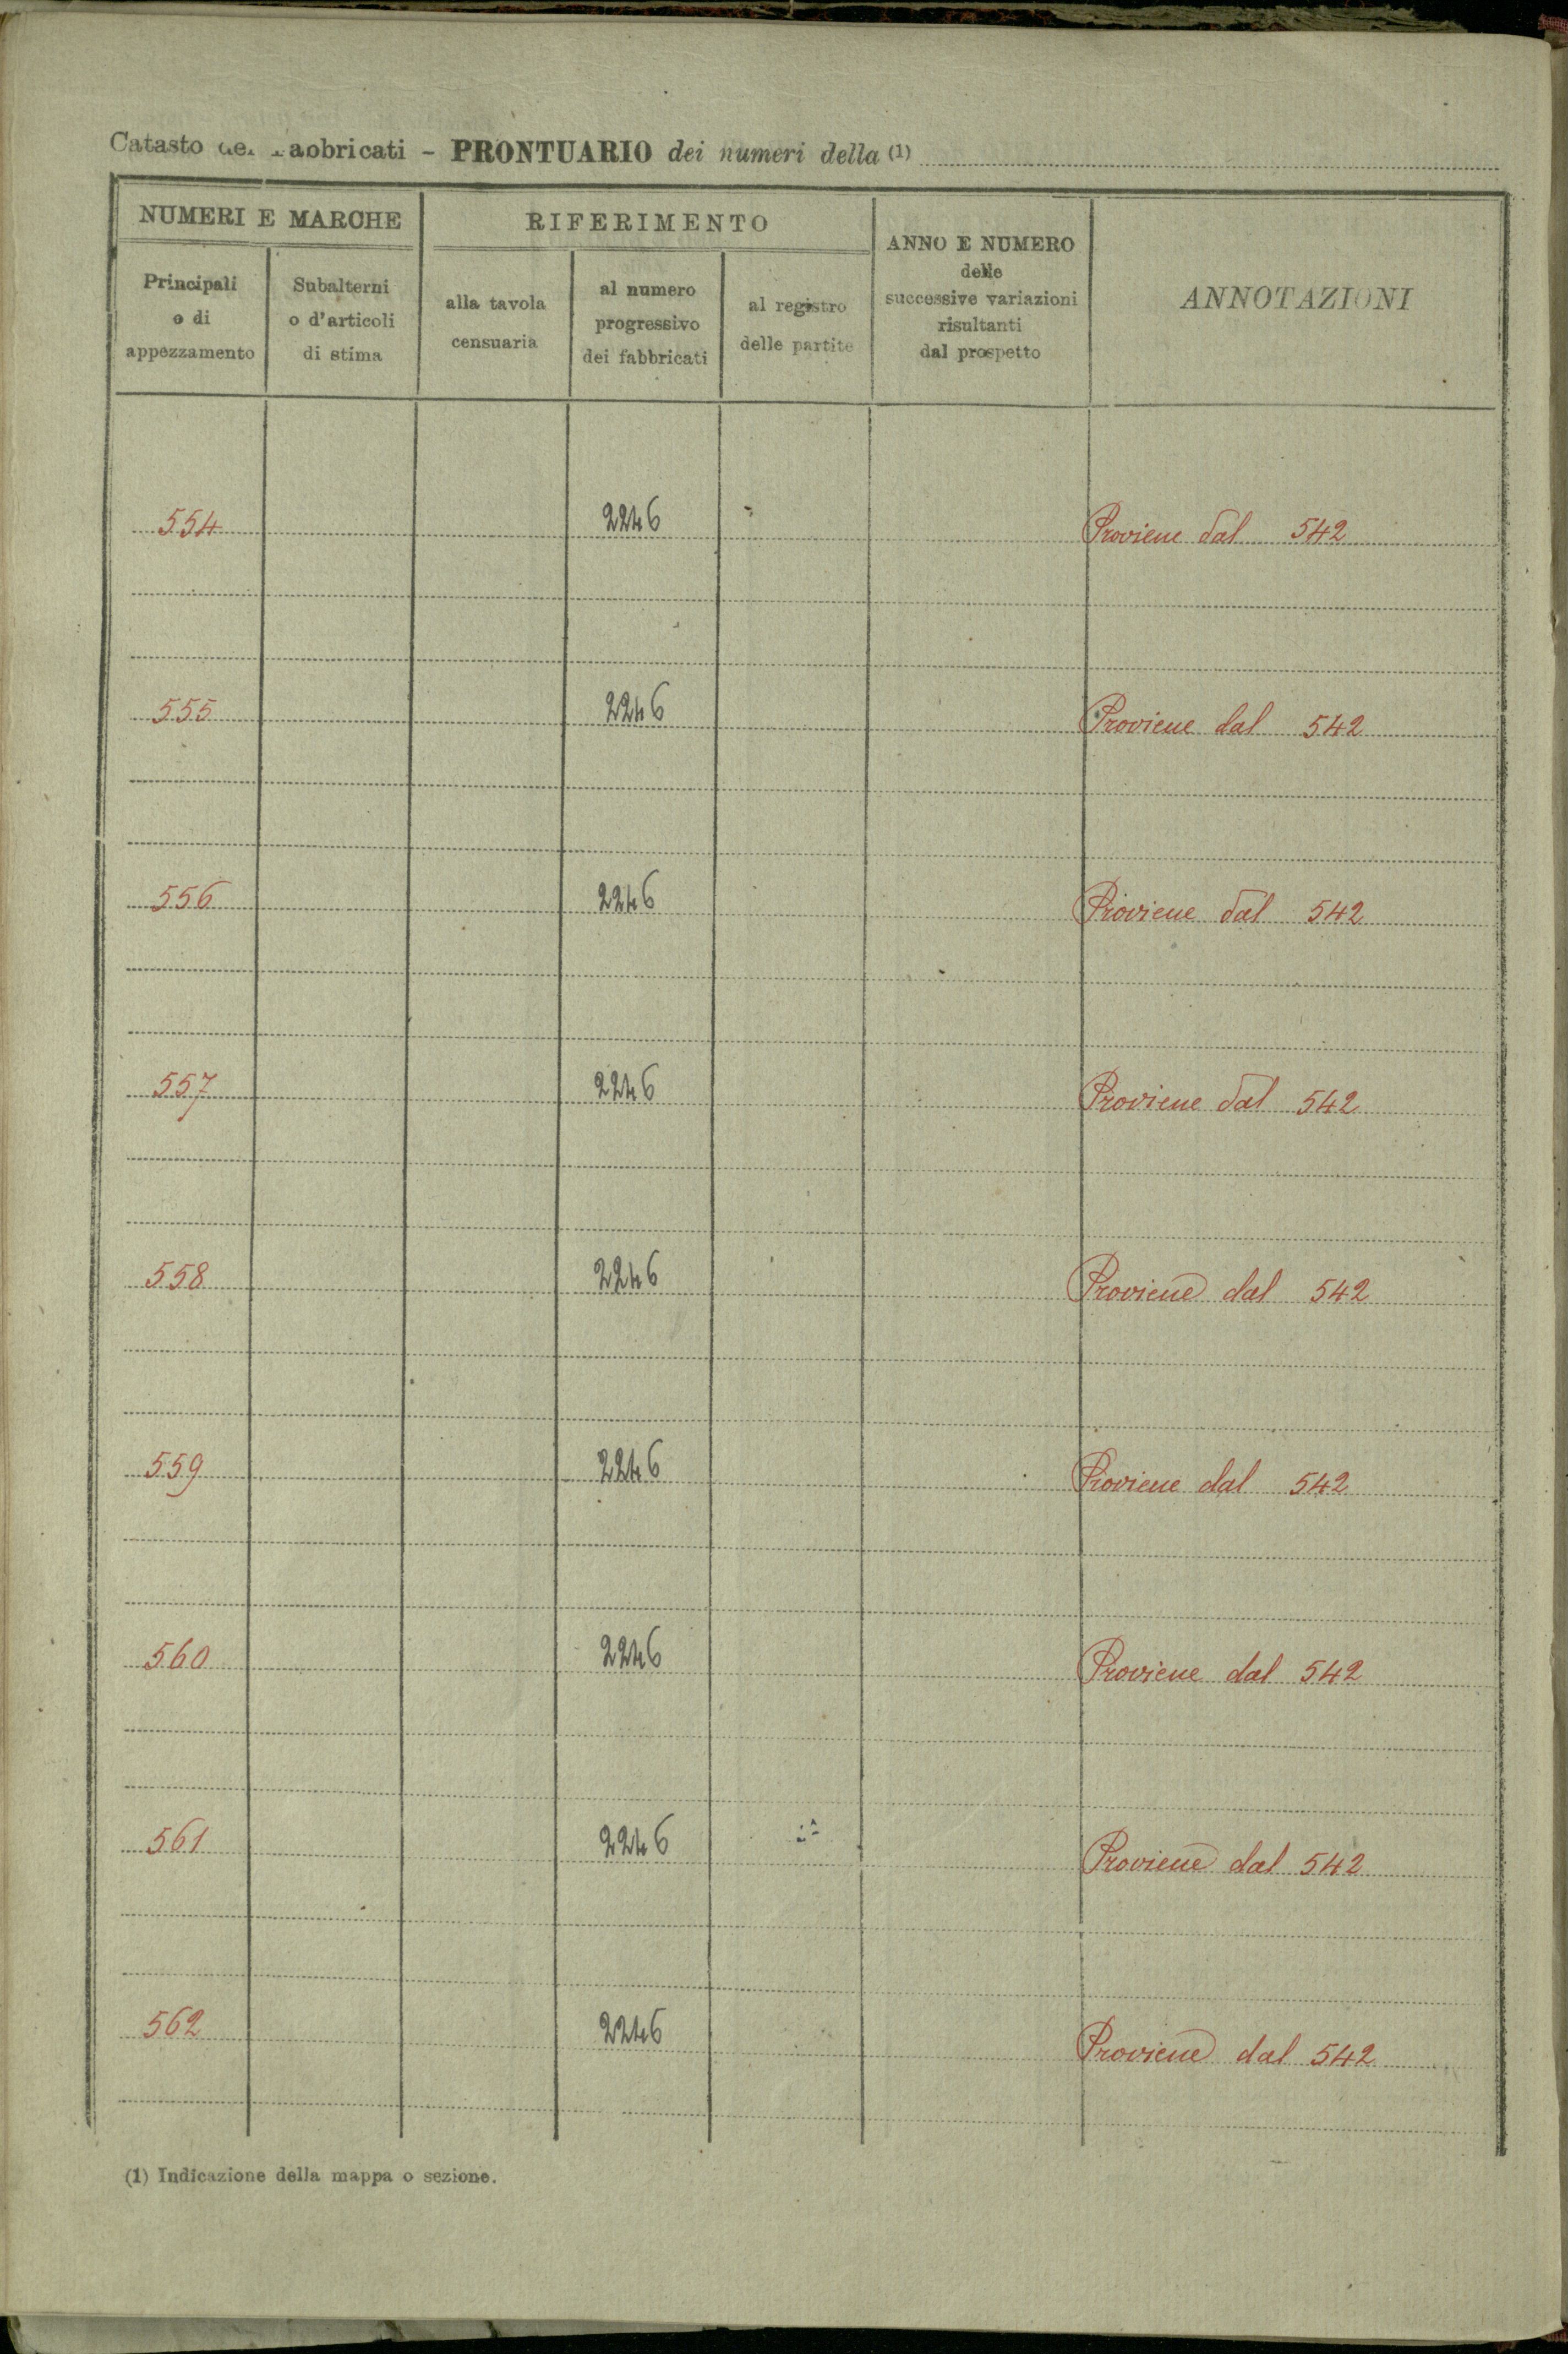 Catasto dei Fabbricati - PRONTUARIO dei numeri della (1)
NUMERI E MARCHE
RIFERIMENTO
ANNO E NUMERO
delle
successive variazioni
risultanti
dal prospetto
ANNOTAZIONI
Principali
o di
appezzamento
Subalterni
o d'articoli
di stima
alla tavola
censuaria
al numero
progressivo
dei fabbricati
al registro
delle partite
554 2246 Proviene dal 542
555 2246 Proviene dal 542
556 2246 Proviene dal 542
557 2246 Proviene dal 542
558 2246 Proviene dal 542
559 2246 Proviene dal 542
560 2246 Proviene dal 542
561 2246 Proviene dal 542
562 2246 Proviene dal 542
(1) Indicazione della mappa o sezione.